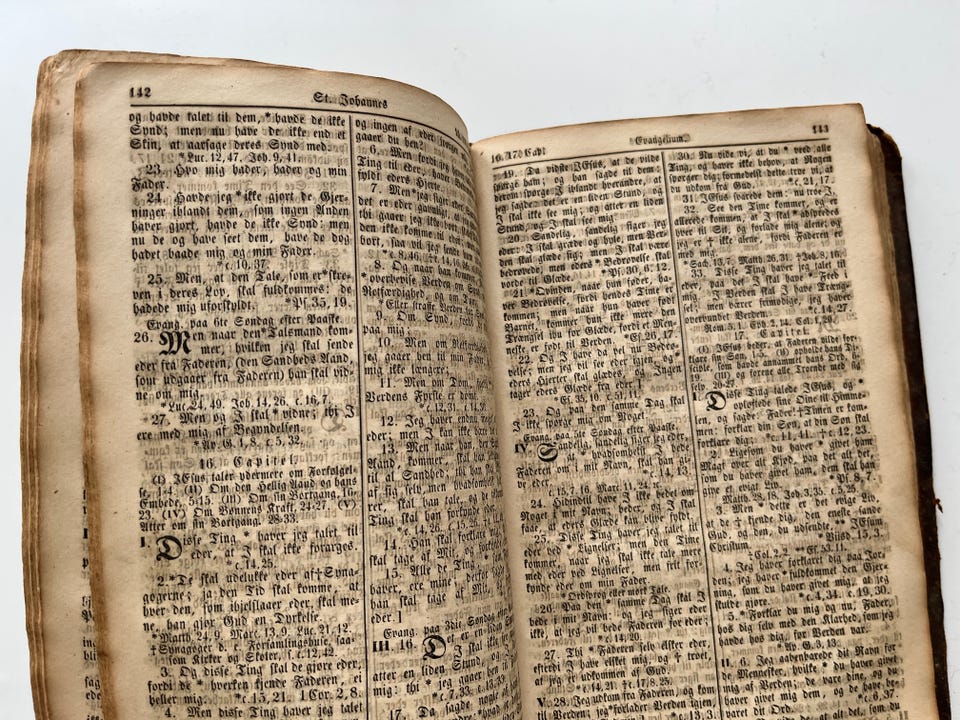 142
St. Johannes
og havde talet til dem, * havde de ikke
Synd; men nu have de ikke end et
Skin, at aarsage deres Synd med.
*Luc. 12, 47. Joh. 9, 41.
23. Hvo mig hader, hader og min
Fader.
24. Havde jeg *ikke gjort de Gjer-
ninger iblandt dem, som ingen Anden
haver gjort, havde de ikke Synd; men
nu de og have seet dem, have de dog
hadet baade mig og min Fader.
*c. 10, 37.
25. Men, at den Tale, som er *skre-
ven i deres Lov, skal fuldkommes: de
hadede mig uforskyldt. *Ps. 35, 19.
Evang. paa 6te Søndag efter Paaske.
26. Men naar den *Talsmand kom-
mer, hvilken jeg skal sende
eder fra Faderen, (den Sandheds Aand,
som udgaaer fra Faderen) han skal vid-
ne om mig.
*Luc. 24, 49. Joh. 14, 26. c. 16, 7.
27. Men og I skal *vidne; thi I
ere med mig af Begyndelsen.
*Ap. G. 1, 8. c. 5, 32.
16. Capitel.
(I) JEsus taler ydermere om Forfølgel-
se, 1-4. (II) Om den Hellig Aand og hans
Embede, 5-15. (III) Om sin Bortgang, 16-
23. (IV) Om Bønnens Kraft, 24-27. (V)
Atter om sin Bortgang. 28-33.
I. Disse Ting *haver jeg talet til
eder, at I skal ikke forarges.
*c. 14, 25.
2. *De skal udelukke eder af †Syna-
gogerne; ja den Tid skal komme, at
hver den, som ihjelslaaer eder, skal me-
ne, han gjør Gud en Dyrkelse.
*Matth. 24, 9. Marc. 13, 9. Luc. 21, 12.
†Synagoger d. e. Forsamlingshuse saa-
som Kirker og Skoler, s. c. 12, 42.
3. Og disse Ting skal de gjøre eder,
fordi de *hverken kjende Faderen, ei
heller mig. *c. 15, 21. 1 Cor. 2, 8.
4. Men disse Ting haver jeg talet
og ingen af eder
gaaer du hen?
6. Men fordi jeg
Ting til eder, haver
fyldt eders Hjerte.
7. Men *jeg siger eder
det er eder gavnligt, at
thi gaaer jeg ikke bort,
den ikke komme til eder;
bort, saa vil jeg sende
8. Og naar han kommer,
*overbevise Verden om Synd
Retfærdighed, og om Dom.
*Eller straffe Verden for
9. Om Synd, fordi
paa mig;
10. Men om Retfærdighed
jeg gaaer hen til min Fader
mig ikke længere;
11. Men om Dom, fordi
Verdens Fyrste er dømt.
*c. 12, 31. c. 14, 30.
12. Jeg haver endnu meget
eder; men I kan ikke bære
13. Men naar han, den
Aand, kommer, skal han
til al Sandhed
af sig selv, men hvadsomhelst
han skal tale, og de
Ting skal han forkynde eder.
*c. 14, 26. c. 15, 26.
14. Han skal forklare mig,
skal tage af Mit, og forkynde
15. Alle de Ting,
haver, ere mine; derfor
han skal tage af Mit,
eder.]
Evang. paa 3die Søndag
III. 16. Det er en liden
liden Stund,
mig: thi *jeg gaaer
*c. 7, 33. c. 13, 33.
17. Da sagde nogle
16. 17. Cap.
Evangelium.
143
19. Da vidste JEsus, at de vilde
spørge ham; og han sagde til dem:
spørge I iblandt hverandre, at
jeg sagde: det er en liden Stund, og
I skal ikke see mig; og atter en liden
Stund, og I skal see mig.
20. Sandelig, sandelig siger jeg
eder: I skal græde og hyle, men Ver-
den skal glæde sig; men I skal være
bedrøvede, men eders *Bedrøvelse skal
vorde til Glæde. *Ps. 30, 6. 12.
21. *Qvinden, naar hun føder, ha-
ver Bedrøvelse, fordi hendes Time er
kommen; men naar hun haver født
Barnet, kommer hun ikke mere den
Trængsel ihu for Glæde, fordi et Men-
neske er født til Verden. *Es. 26, 17.
22. Og I have da vel nu Bedrø-
velse; men jeg vil see eder igjen, og
eders Hjerte skal glædes, og Ingen
tager eders Glæde fra eder.]
*Es. 35, 10. c. 51, 11.
23. Og paa den samme Dag skal
I ikke spørge mig om Noget.
Evang. paa 5te Søndag efter Paaske.
IV. Sandelig, sandelig siger jeg eder,
*hvadsomhelst I bede
Faderen om i mit Navn, skal han give
eder. *c. 14, 13.
c. 15, 7. 16. Marc. 11, 24.
24. Hidindtil have I ikke bedet om
Noget i mit Navn; beder, og I skal
faae, at eders Glæde kan blive fyldt.
25. Disse Ting haver jeg talet til
eder ved *Lignelser; men den Time
kommer, naar jeg skal ikke tale mere
med eder ved Lignelser, men frit for-
kynde eder om min Fader.
*Ordsprog eller mørk Tale.
26. Paa den *samme Dag skal I
bede i mit Navn; og jeg siger eder
ikke, at jeg vil bede Faderen for eder;
*c. 14, 20.
27. Thi *Faderen selv elsker eder,
efterdi I have elsket mig, og † troet,
at jeg er udkommen fra Gud.
*c. 14, 21. † c. 17, 8. 25.
V. 28. Jeg udkom fra Faderen, og kom
til Verden; jeg forlader Verden igjen,
30. Nu vide vi, at du *veed alle
Ting, og haver ikke behov, at Nogen
spørger dig; formedelst dette troe vi, at
du udkom fra Gud. *c. 21, 17.
31. JEsus svarede dem: nu troe I.
32. See den Time kommer, og er
allerede kommen, at I skal *adspredes
hver til Sit, og forlade mig alene; og
jeg er † ikke alene, fordi Faderen er
med mig.
*Zach. 13, 7. Matth. 26, 31. †Joh. 8, 16.
33. Disse Ting haver jeg talet til
eder, paa det I skal have *Fred i
mig. I Verden skal I have Træng-
sel; men værer frimodige, jeg haver
overvundet Verden. *c. 14, 27.
Rom. 5, 1. Eph. 2, 14. Col. 1, 20.
17. Capitel.
(I) JEsus beder, at Faderen vilde for-
klare sin Søn, 1-5. (II) opholde hans Di-
sciple, som havde annammet hans Ord, 6-
19. (III) og forene alle Troende med sig
selv. 20-27.
I. Disse Ting talede JEsus, og *
opløftede sine Øine til Himme-
len, og sagde: Fader! †Timen er kom-
men, forklar din Søn, at din Søn skal
forklare dig; *c. 11, 41. †c. 12, 23.
2. Ligesom du haver *givet ham
Magt over alt Kjød, paa det alt det,
som du haver givet ham, dem skal han
give et evigt Liv. *Ps. 8, 7.
Matth. 28, 18. Joh. 3, 35. c. 5, 25.
3. Men *dette er det evige Liv,
at de † kjende dig, den eneste sande
Gud, og den, du udsendte, ** JEsum
Christum. *Viisd. 15, 3.
Col. 2, 2. **Es. 53, 11.
4. Jeg haver forklaret dig paa Jor-
den; jeg haver *fuldkommet den Gjer-
ning, som du haver givet mig, at jeg
skulde gjøre. *c. 4, 34. c. 19, 30.
5. *Forklar du mig og nu, Fader,
hos dig selv med den Klarhed, som jeg
havde hos dig, før Verden var.
*Ap. G. 3, 13.
II. 6. Jeg aabenbarede dit Navn for
de Mennesker, hvilke *du haver givet
mig af Verden; de vare dine, og du
haver givet mig dem, og de have
bevaret dit Ord. *c. 6, 37.